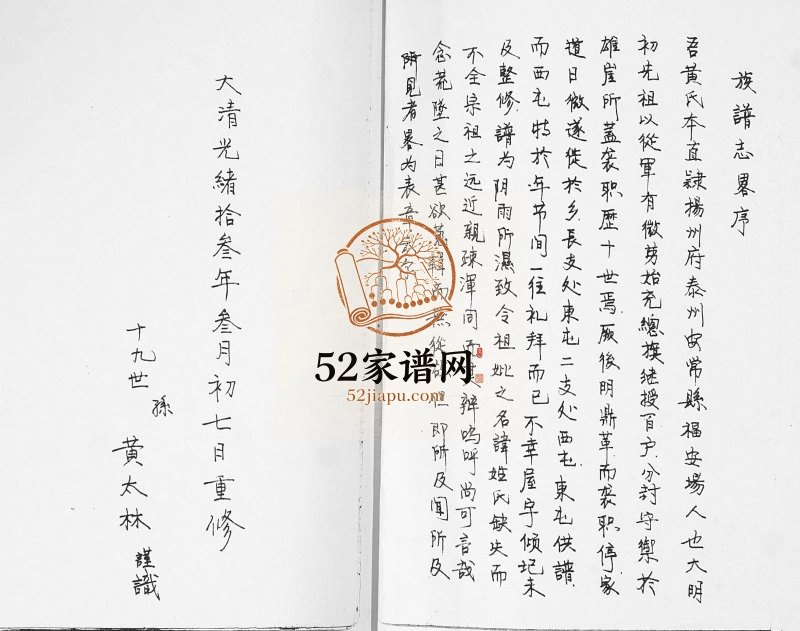 族譜志畧序
吾黃氏本直隸揚州府泰州安常縣福安場人也大明
初先祖以從軍有微勞始充總旗继授百户分封守禦於
雄崖所蓋袭职歷十世焉厥後明鼎革而袭职停家
道日微遂徙於乡長支处東屯二支处西屯東屯供譜
而西屯特於年节间一往礼拜而已不幸屋宇倾圮未
及整修譜为阴雨所濕致令祖妣之名諱姓氏缺失而
不全宗祖之远近親疎渾同而莫辨嗚呼尚可言哉
念荒墜之日甚欲
無從
但即所及闻所及
所見者畧为表章
大清光緒拾叁年叁月初七日重修
十九世孫黃太林謹識
52家谱网
52jiapu.com